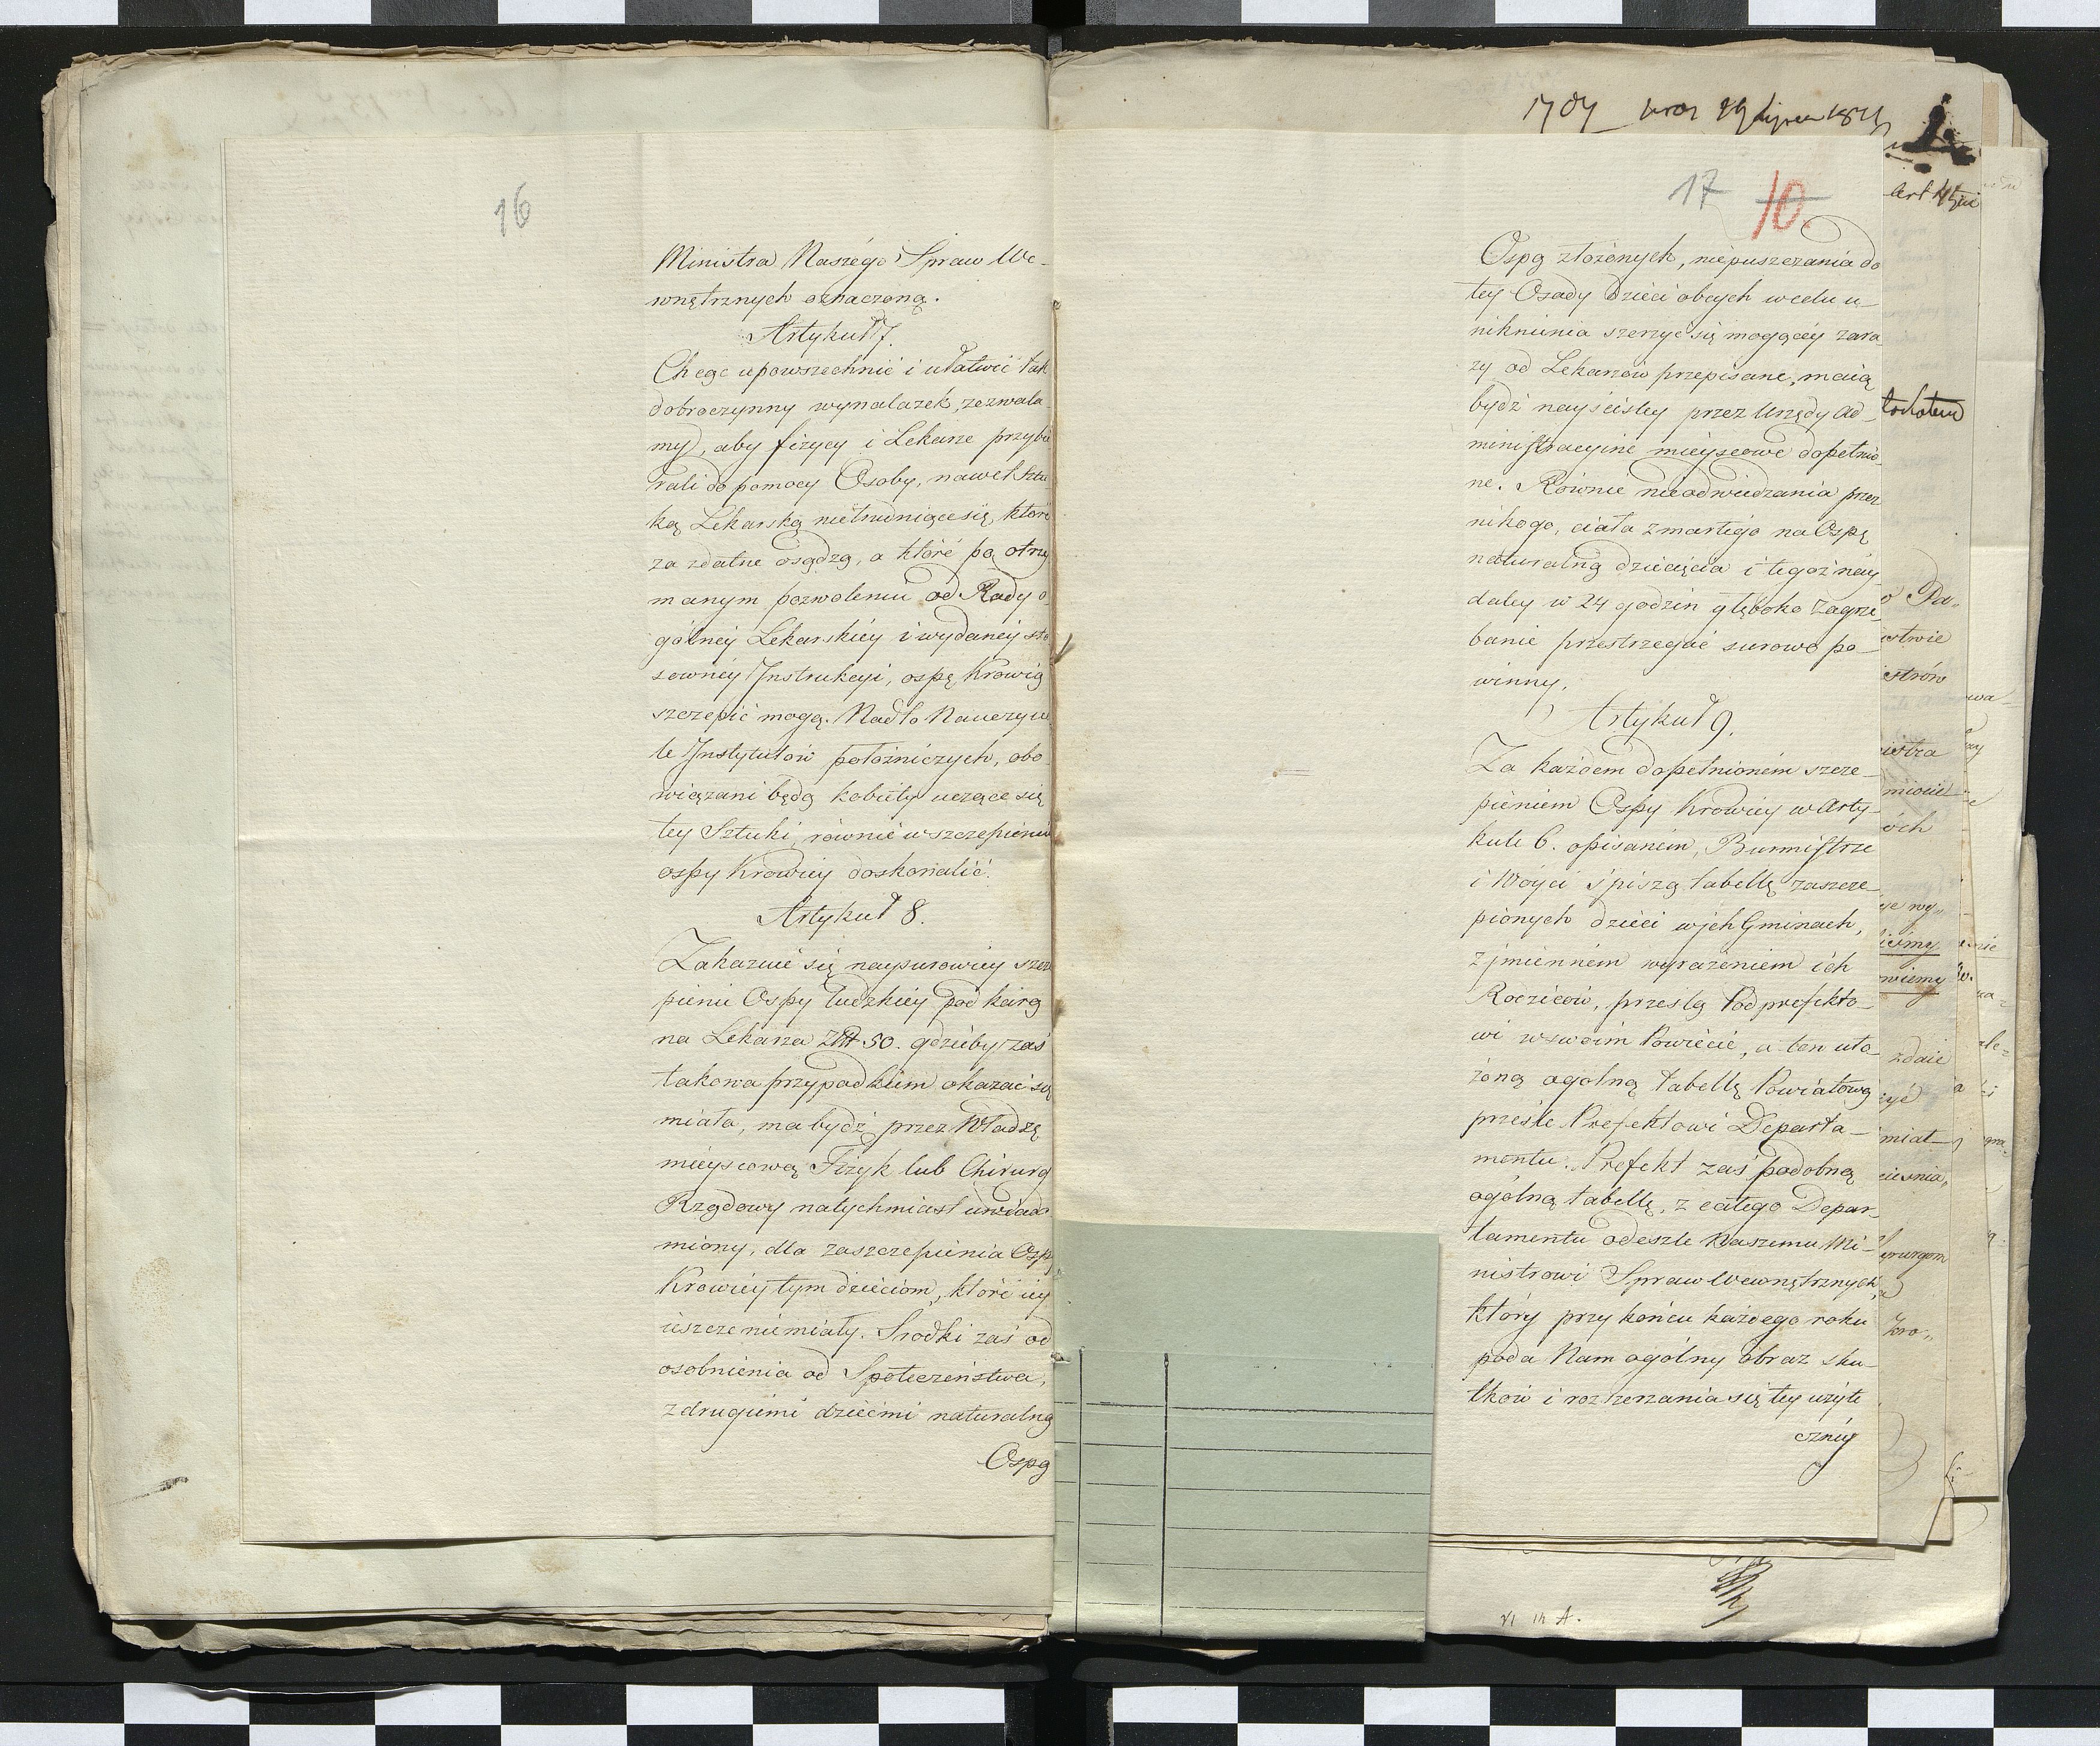 16
Ministra Naszego Spraw We-
wnętrznych oznaczoną.
Artykuł 7.
Chcąc upowszechnić i ułatwić tak
dobroczynny wynalazek, zezwala
my, aby fizycy i Lekarze przybie
rali do pomocy Osoby, nawet Sztu
ką Lekarską nietrudniące się, które
za zdatne osądzą, a które po otrzy
manym pozwoleniu od Rady o
gólney Lekarskiey i wydaney sto
sowney Instrukcyi, ospę Krowią
szczepić mogą. Nadto Nauczycie
le Instytutów położniczych, obo
wiązani będą kobiety uczące się
tey Sztuki, równie w szczepieniu
ospy Krowiey doskonalić.
Artykuł 8.
Zakazuie się naysurowiey szcze
pienie Ospy ludzkiey pod karą
na Lekarza Złł 50. gdzieby zaś
takowa przypadkiem okazać się
miała, ma bydź przez Władzę
mieyscową Fizyk lub Chirurg
Rządowy natychmiast uwiado
miony, dla zaszczepienia Ospy
Krowiey tym dzieciom, które iey
ieszcze niemiały. Srodki zaś od
osobnienia od Społeczeństwa,
z drugiemi dziećmi naturalną
Ospą
1707 29 Lipca
17 10.
Ospą złożonych, niepuszczania do
tey Osady dzieci obcych w celu u-
niknienia szerzyć się mogącey zara
zy od Lekarzów przepisane, maią
bydź nayściśley przez Urzędy Ad-
ministracyine mieyscowe dopełnio-
ne. Równie nieodwiedzania przez
nikogo, ciała zmarłego na Ospę
naturalną dziecięcia i tegoż nay
daley w 24 godzin głęboko zagrze
banie przestrzegać surowo po-
winny.
Artykuł 9.
Za każdem dopełnioném szcze-
pieniem Ospy Krowiey w Arty-
kule 6. opisaném, Burmistrze
i Woyci spiszą tabellę zaszcze-
pionych dzieci w ich Gminach,
z imiennem wyrażeniem ich
Rodziców, prześlą Podprefekto-
wi w swoim Powiecie, a ten uło-
żoną ogólną tabellę Powiatową
prześle Prefektowi Departa-
mentu. Prefekt zaś podobną
ogólną tabellę, z całego Depar-
tamentu odeszle Naszemu Mi-
nistrowi Spraw Wewnętrznych,
który przy końcu każdego roku
poda Nam ogólny obraz sku-
tków i rozszerzania się tey użyte
czney